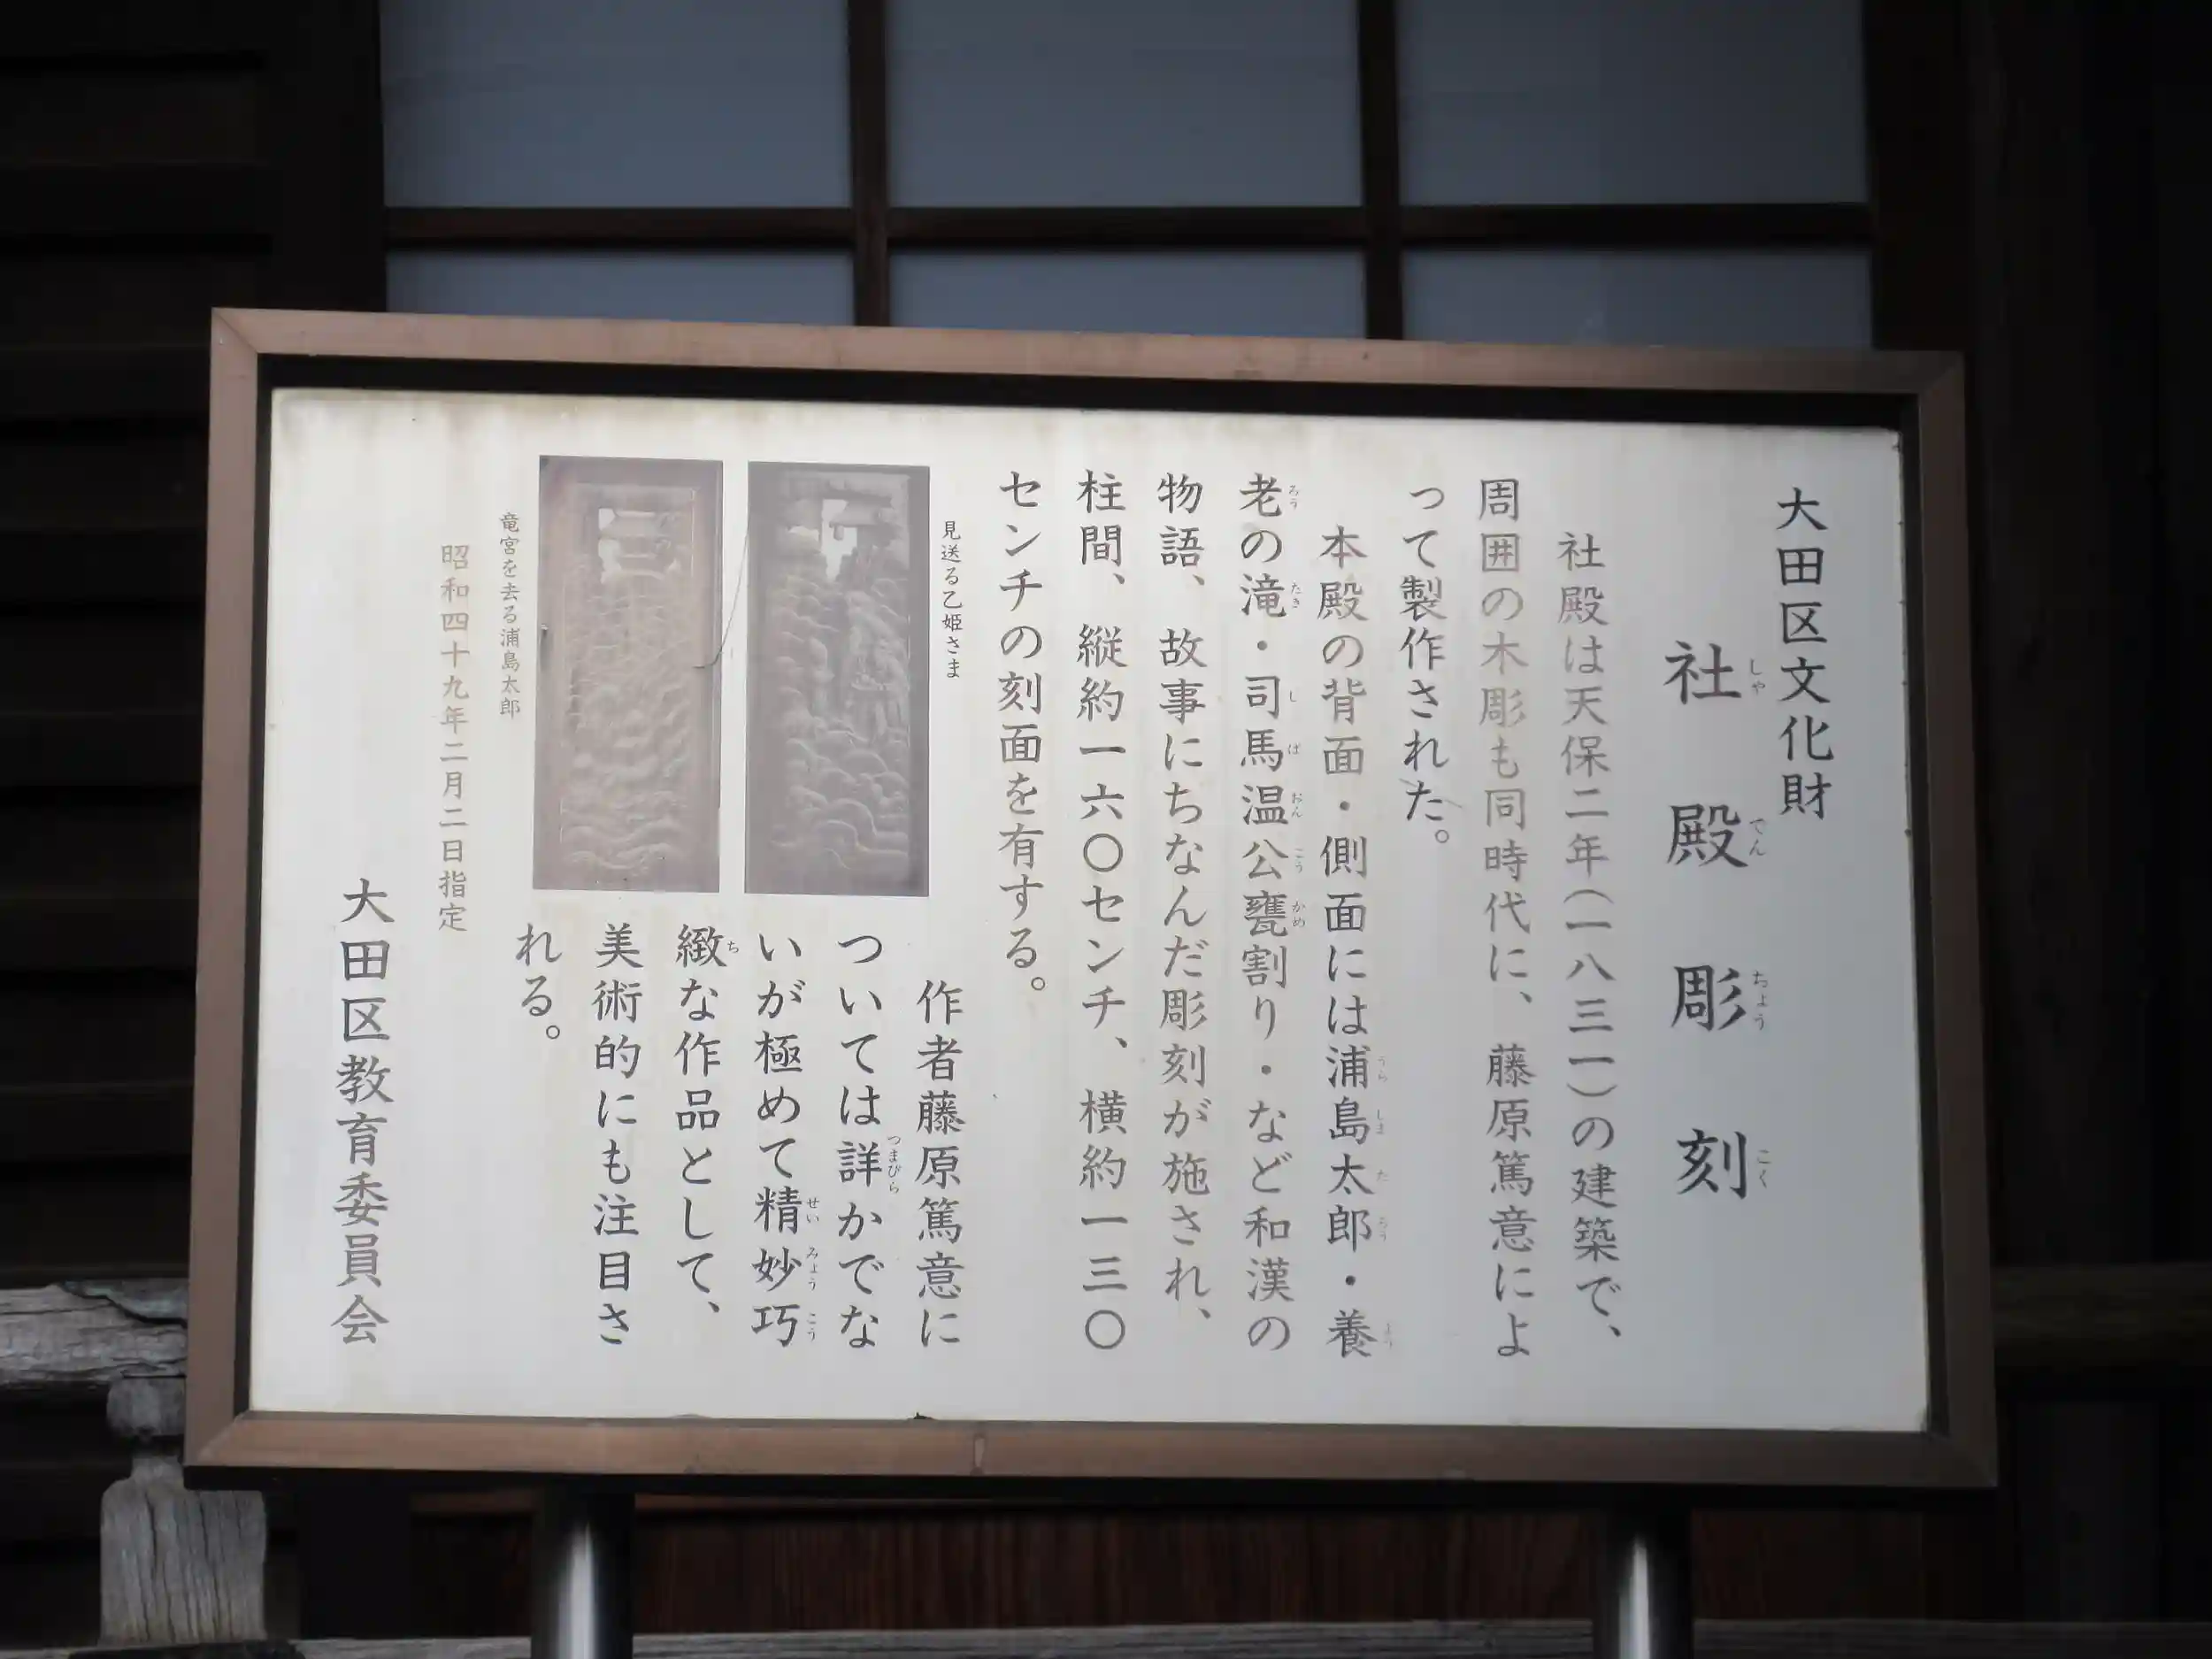 大田区文化財
社殿彫刻
社殿は天保二年(一八三一)の建築で、
周囲の木彫も同時代に、藤原篤意によ
って製作された。
本殿の背面・側面には浦島太郎・養
老の滝・司馬温公甕割り・など和漢の
物語、故事にちなんだ彫刻が施され、
柱間、縦約一六〇センチ、横約一三〇
センチの刻面を有する。
見送る乙姫さま
竜宮を去る浦島太郎
作者藤原篤意に
ついては詳かでな
いが極めて精妙巧
緻な作品として、
美術的にも注目さ
れる。
昭和四十九年二月二日指定
大田区教育委員会